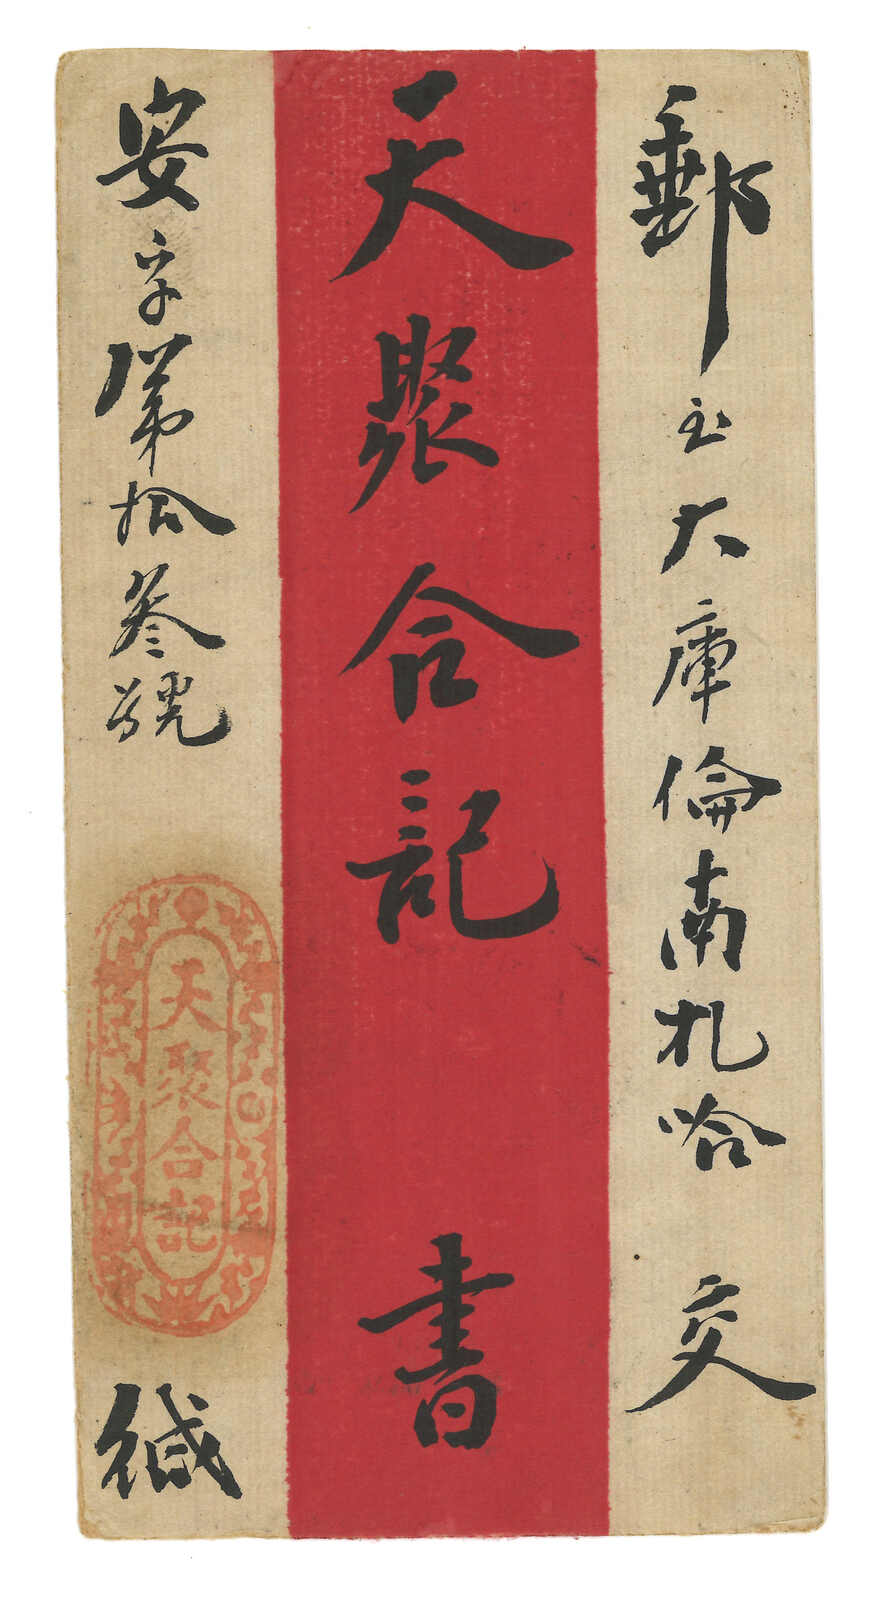 郵至大庫倫南札哈 交
天聚合記 書
安字第拾叁號
天聚合記
緘